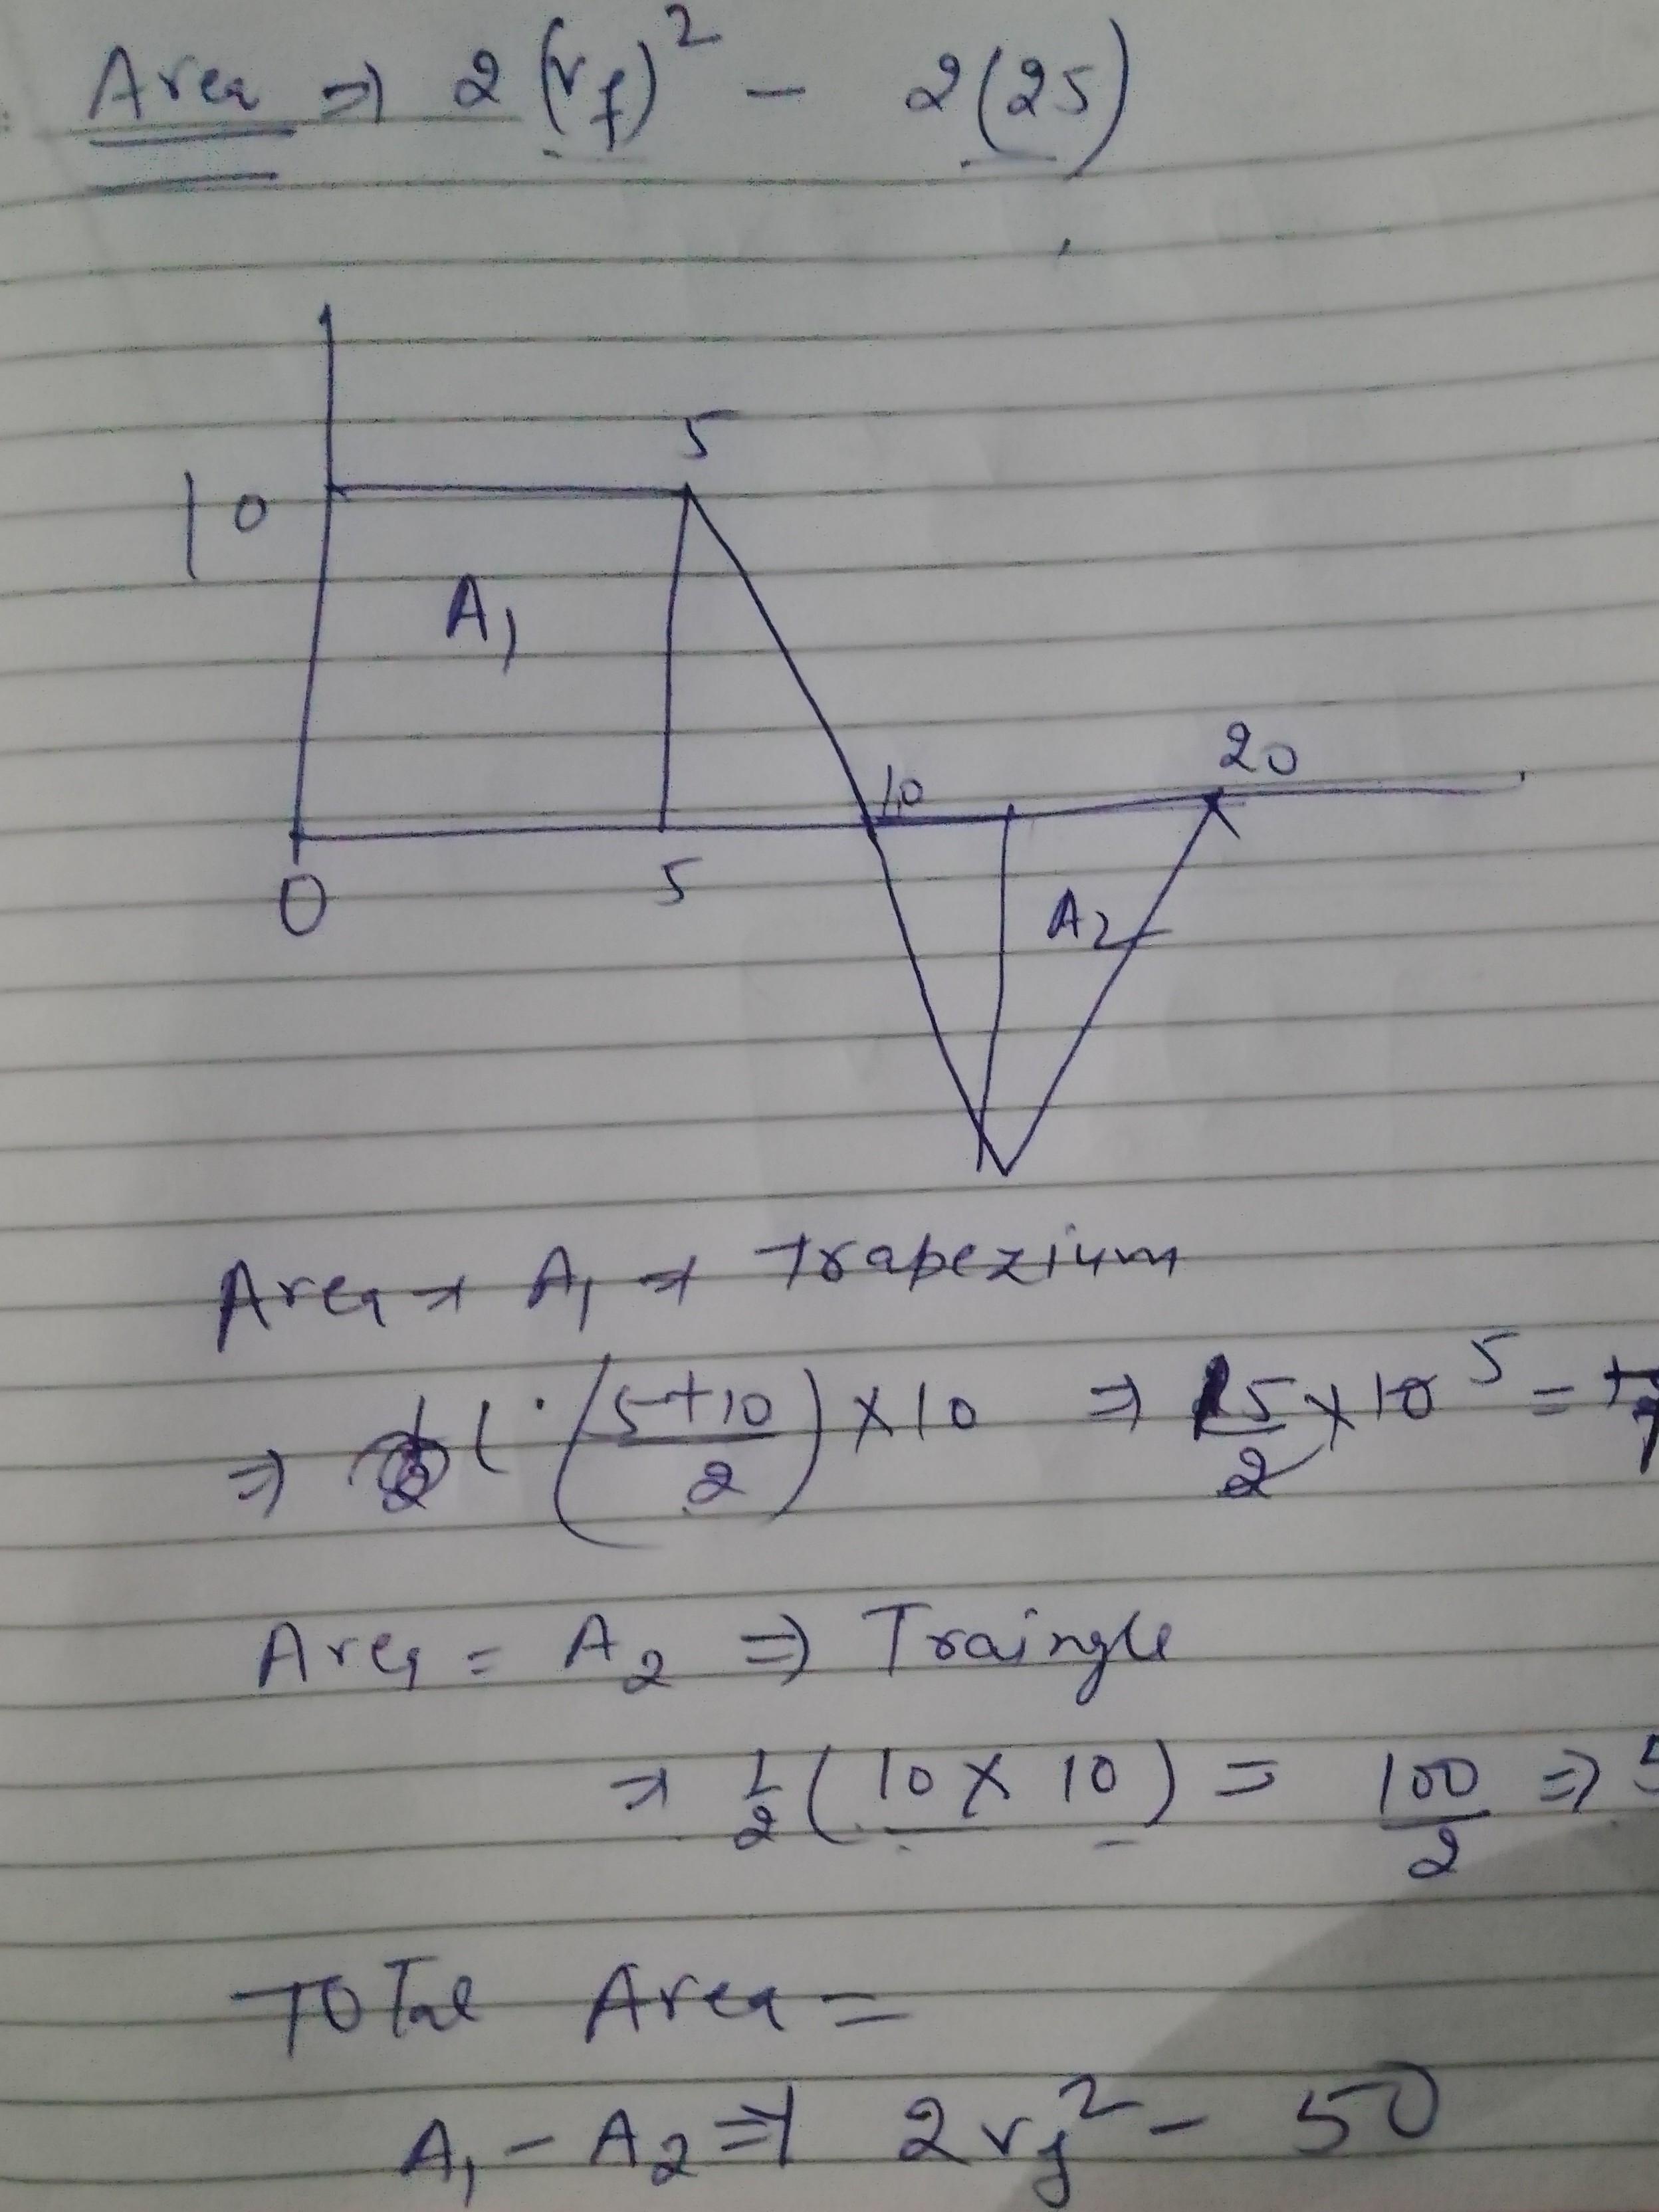 Area ⇒ 2(vf)² - 2(25)
5
10
A₁
10
20
0
5
A₂
Area → A₁ → Trapezium
⇒ (5+10/2) × 10 ⇒ 15/2 × 10 5 =
Area = A₂ ⇒ Traingle
⇒ 1/2 (10 × 10) = 100/2 ⇒
Total Area =
A₁ - A₂ ⇒ 2vf² - 50